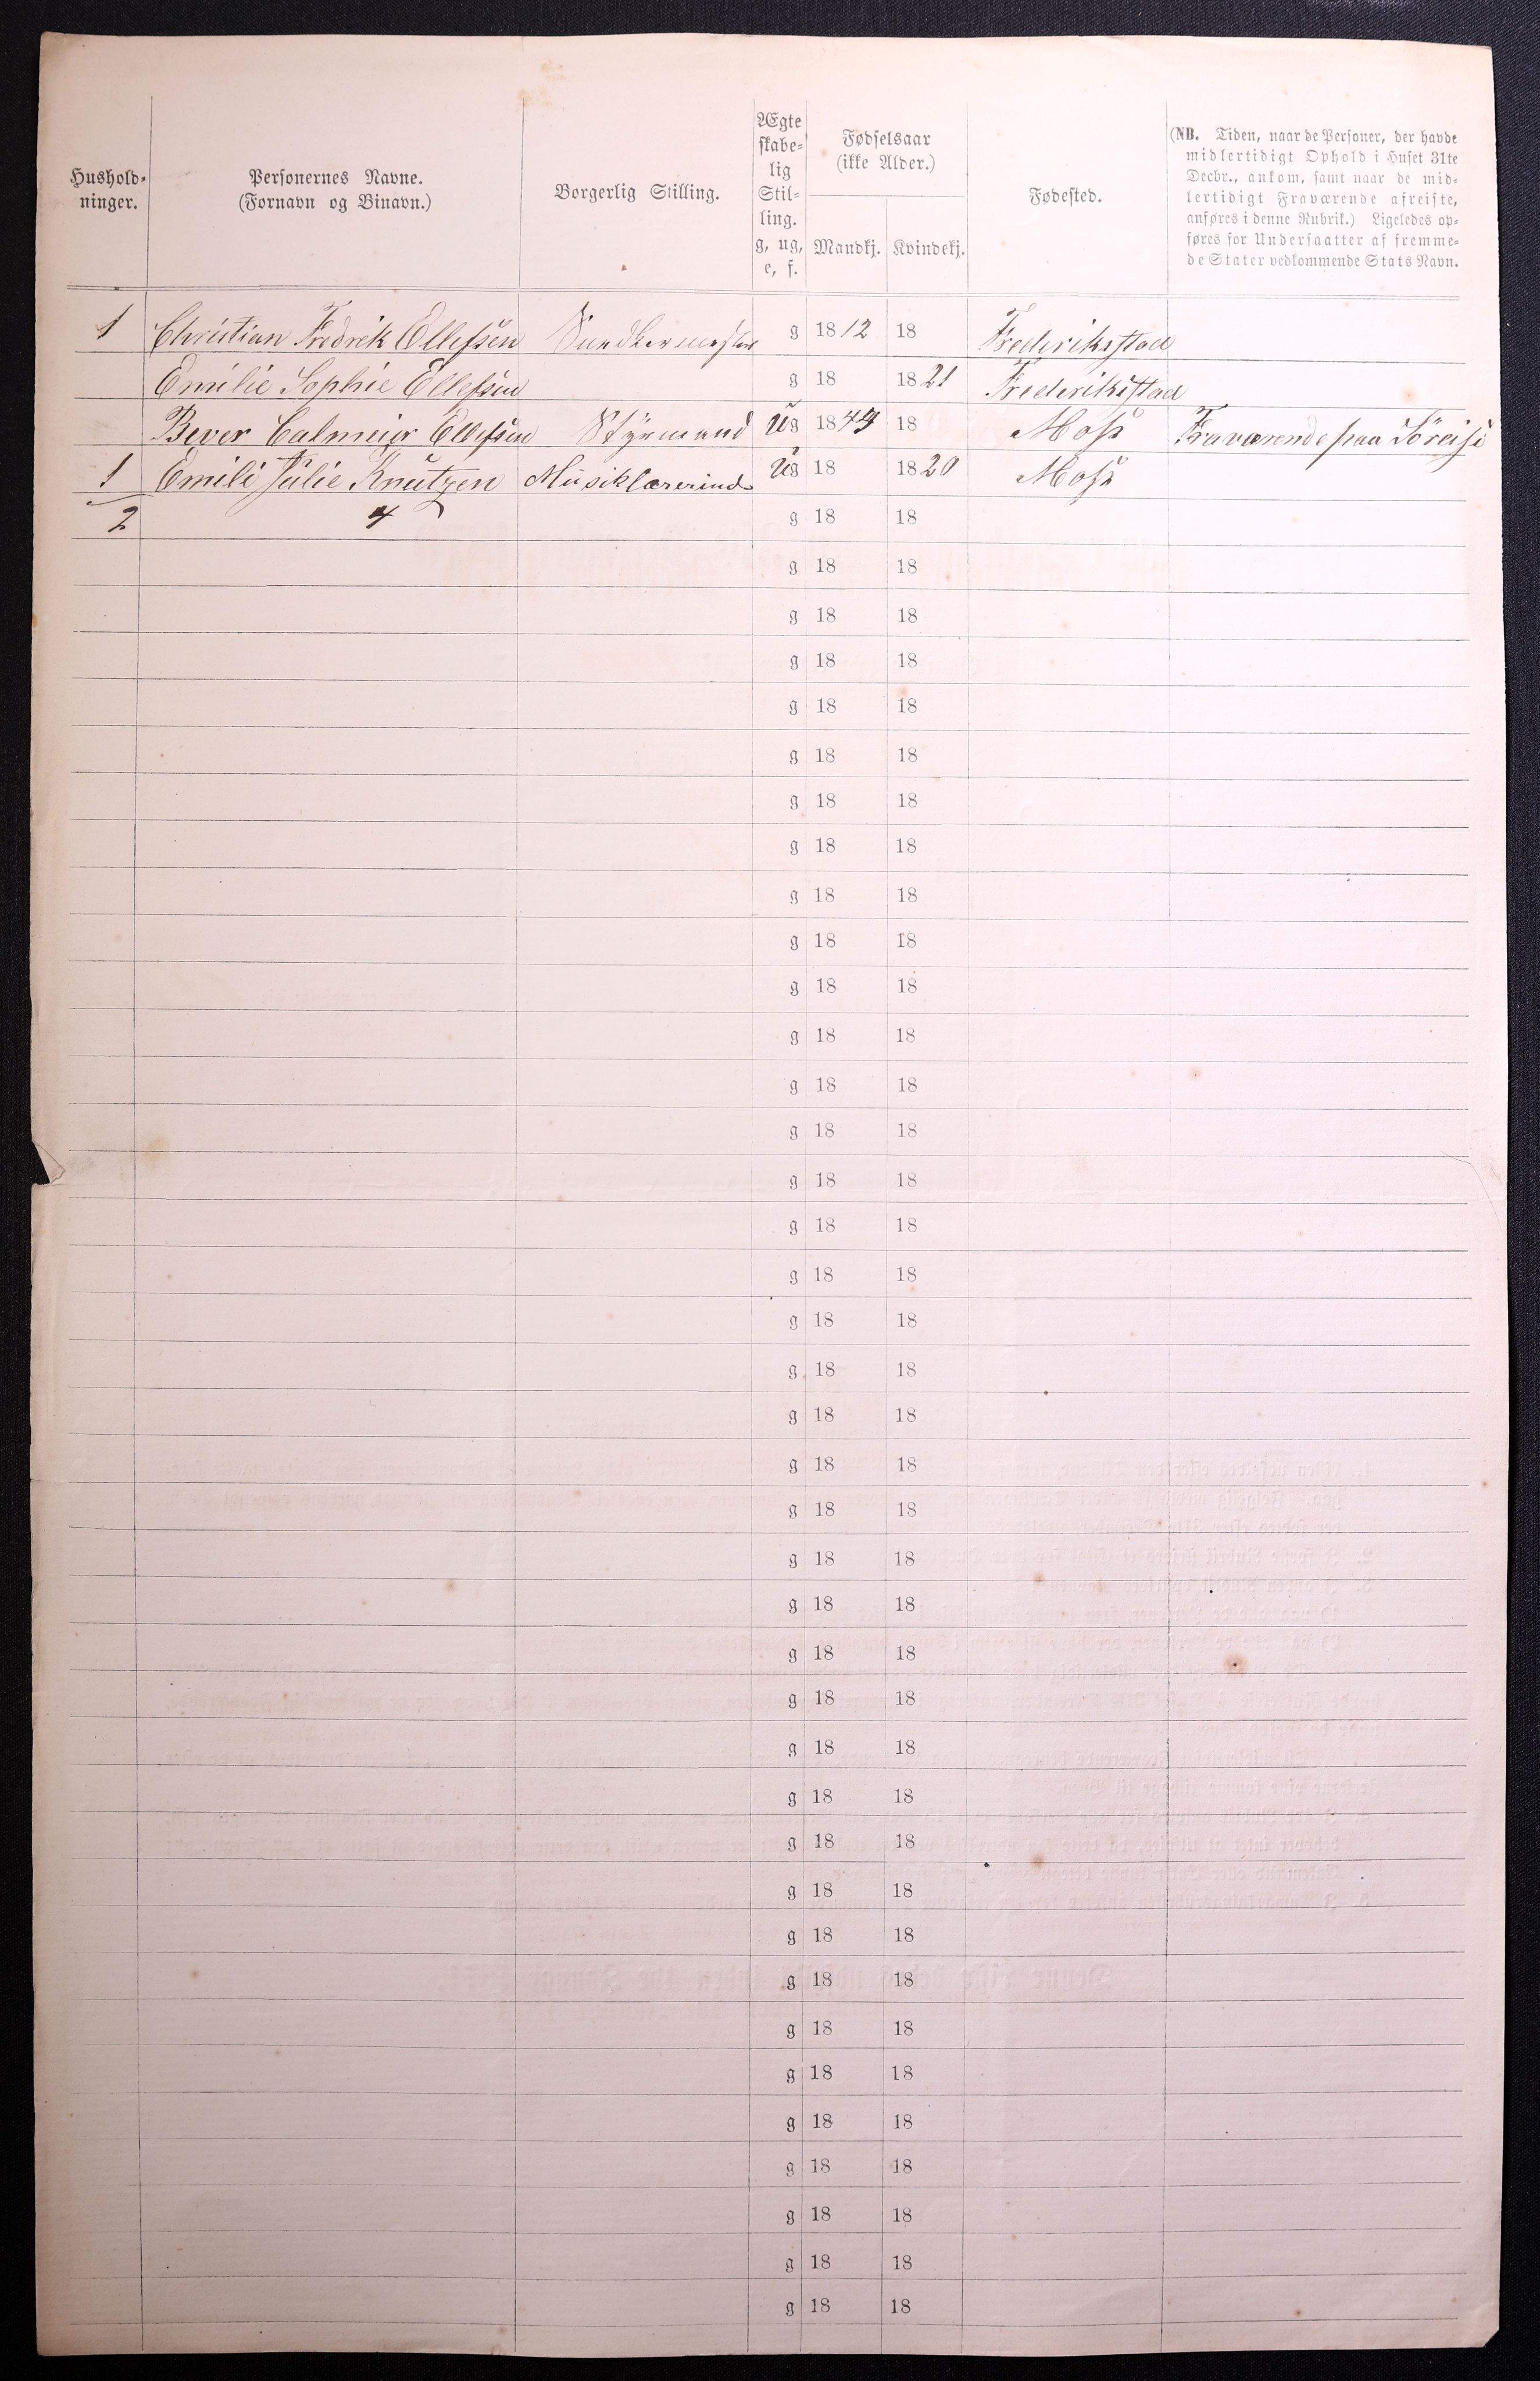 Hushold-
ninger.
Personernes Navne.
(Fornavn og Binavn.)
Borgerlig Stilling.
Ægte
skabe-
lig
Stil-
ling.
g, ug,
e, f.
Fødselsaar
(ikke Alder.)
Mandkj. Kvindekj.
Fødested.
(NB. Tiden, naar de Personer, der havde
midlertidigt Ophold i Huset 31te
Decbr., ankom, samt naar de mid-
lertidigt Fraværende afreiste,
anføres i denne Rubrik.) Ligeledes op-
føres for Undersaatter af fremme-
de Stater vedkommende Stats Navn.
1 Christian Fredrik Ellefsen g 1812 18 Frederikstad
Emilie Sophie Ellefsen g 18 1821 Frederikstad
Bever Calmeier Ellefsen Styrmand Ug 1844 18 Moss Fraværende paa Söreise
1 Emili Julie Knutzen Musiklærerinde Ug 18 1820 Moss
2 4 g 18 18
g 18 18
g 18 18
g 18 18
g 18 18
g 18 18
g 18 18
g 18 18
g 18 18
g 18 18
g 18 18
g 18 18
g 18 18
g 18 18
g 18 18
g 18 18
g 18 18
g 18 18
g 18 18
g 18 18
g 18 18
g 18 18
g 18 18
g 18 18
g 18 18
g 18 18
g 18 18
g 18 18
g 18 18
g 18 18
g 18 18
g 18 18
g 18 18
g 18 18
g 18 18
g 18 18
g 18 18
g 18 18
g 18 18